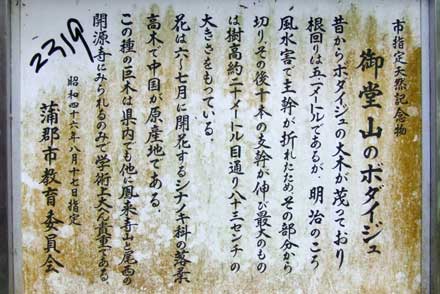 市指定天然記念物
御堂山のボダイジュ
昔からボダイジュの大木が茂っており
根回りは五・一メートルであるが、明治のころ
風水害で主幹が折れたため、その部分から
切り、その後十本の支幹が伸び最大のもの
は樹高約二十メートル目通り八十三センチの
大きさをもっている。
花は六〜七月に開花するシナノキ科の落葉
高木で中国が原産地である。
この種の巨木は県内でも他に鳳来寺山と尾西の
開源寺にみられるのみで学術上大へん貴重である。
昭和四十六年八月十七日指定
蒲郡市教育委員会
2319